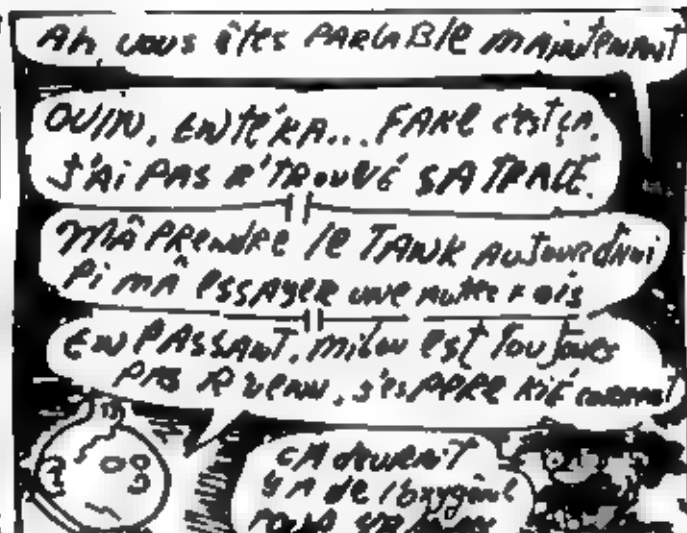 Ah, vous êtes PARLABle MAiNtENANT
OUIN, ENTÉKA... FAKE c'est ça.
J'Ai PAS R'TROUVÉ SA TRACE.
MÂ PRENdRE le TANK AUJourd'hui
Pi MÂ ESSAyER UNE AUtRE FOis
EN PASSANT, milou est touJours
PAS R'VENU, J'ESPÈRE KIÉ correct
ÇA dEVRAIT
Y A de l'oxygène